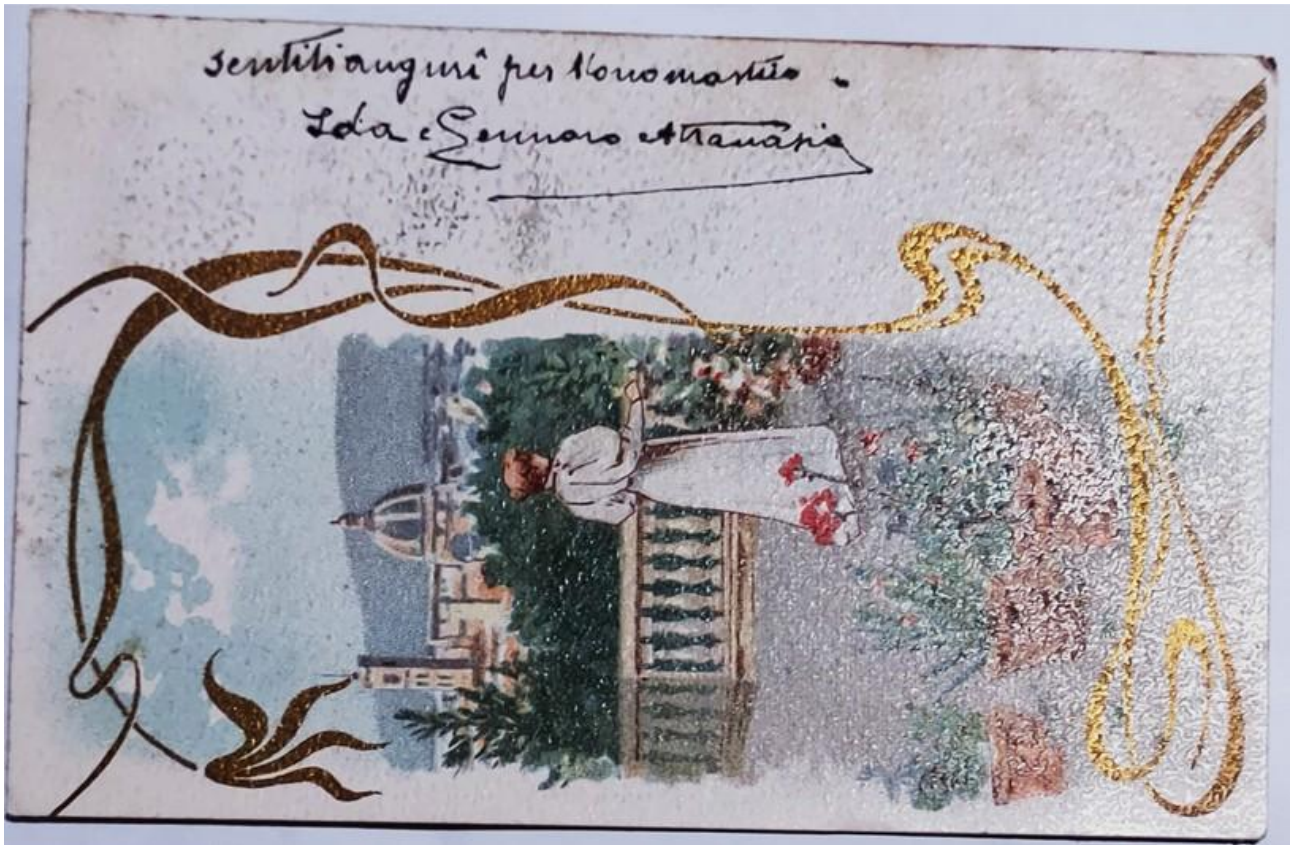 Sentiti auguri per l'onomastico.
Ida e Gennaro Attanasio